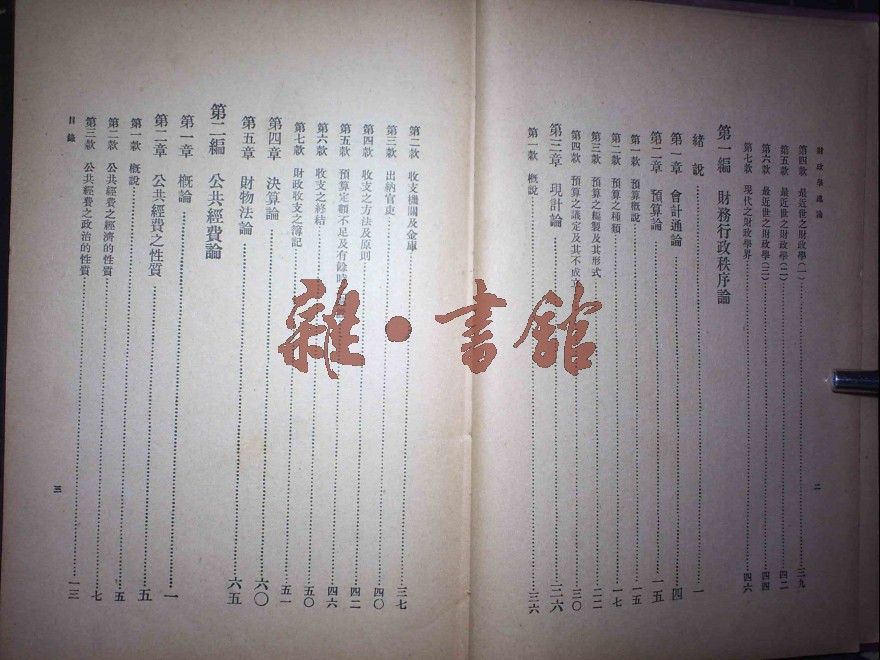 財政學通論
二
第四款 最近世之財政學(一)……三九
第五款 最近世之財政學(二)……四二
第六款 最近世之財政學(三)……四四
第七款 現代之財政學界……四六
第一編 財務行政秩序論
緒說……一
第一章 會計通論……四
第二章 預算論……一五
第一款 預算概說……一五
第二款 預算之種類……一七
第三款 預算之編製及其形式……二二
第四款 預算之議定及其不成立……三〇
第三章 現計論……三六
第一款 概說……三六
第二款 收支機關及金庫……三七
第三款 出納官吏……四〇
第四款 收支之方法及原則……四二
第五款 預算定額不足及有餘時……四六
第六款 收支之終結……五〇
第七款 財政收支之簿記……五一
第四章 決算論……六〇
第五章 財物法論……六五
第二編 公共經費論
第一章 概論……一
第二章 公共經費之性質……五
第一款 概說……五
第二款 公共經費之經濟的性質……七
第三款 公共經費之政治的性質……一三
目錄
三
雜·書館